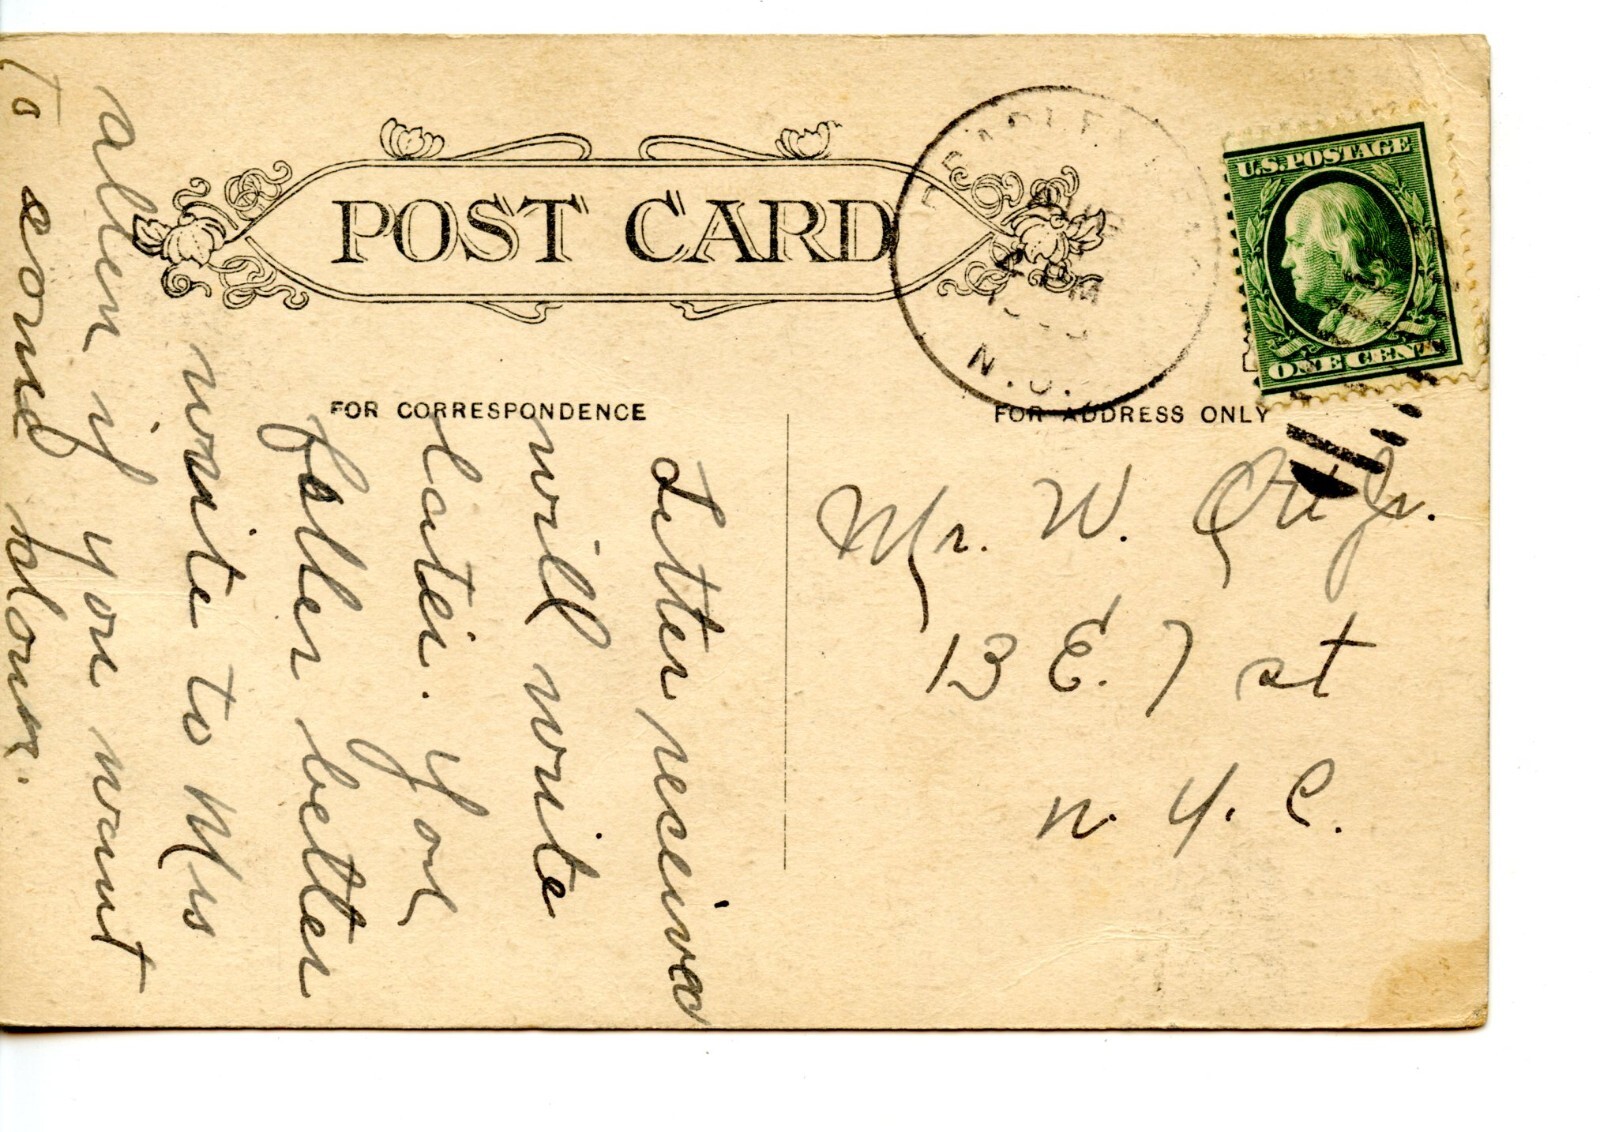 POST CARD
U.S. POSTAGE
ONE CENT
AUG
M
N.J.
FOR CORRESPONDENCE
FOR ADDRESS ONLY
Letter received
will write
later. Your
father better
write to Mrs
Allen if you want
to come down.
Mr. W. Jr.
13 E. 7 st
N. Y. C.